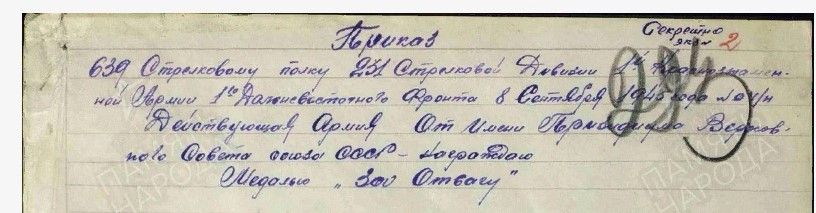 Приказ
Секретно
экз № 2
639 Стрелковому полку 231 Стрелковой Дивизии 1й Краснознамен-
ной Армии 1го Дальневосточного Фронта 8 Сентября 1945 года №01/н
Действующая Армия От имени Президиума Верхов-
ного Совета союза СССР - награждаю
Медалью "За Отвагу"
ПАМЯТЬ
НАРОДА